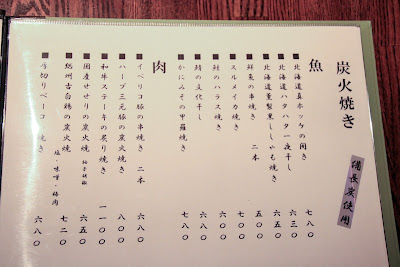 炭火焼き
備長炭使用
魚
■北海道真ホッケの開き 七八〇
■北海道ハタハタ一夜干し 六三〇
■北海道 黒ししゃも焼き 六五〇
■鮮魚の串焼き 二本 五〇〇
■スルメイカ焼き 七〇〇
■鮭のハラス焼き 六〇〇
■鯖の文化干し 六八〇
■かにみその甲羅焼き 七八〇
肉
■イベリコ豚の串焼き 二本 六八〇
■ハーブ三元豚の炭火焼き 八〇〇
■和牛ステーキの炙り焼き 一一〇〇
■国産せせりの炭火焼 柚子胡椒 六五〇
■総州古白鶏の炭火焼 塩・味噌・梅肉 七二〇
■厚切りベーコ 焼き 六八〇